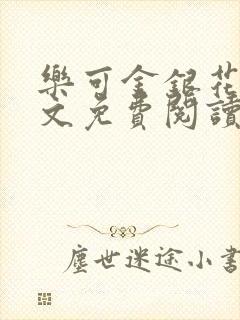 樂可金銀花
文免費閱讀
塵世迷途小書